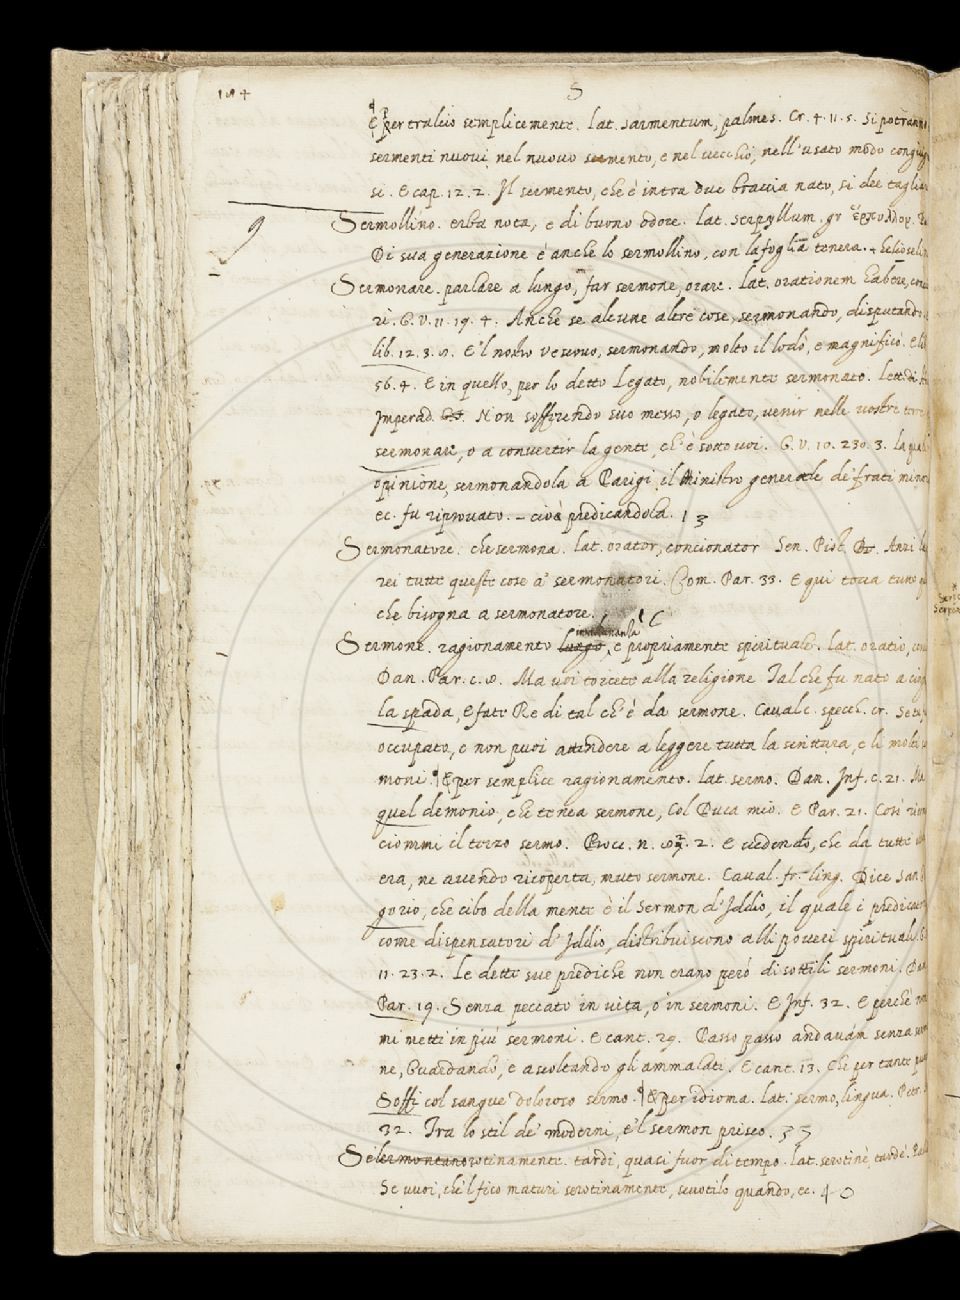 S
E per tralcio semplicemente. Lat. sarmentum, palmes. Cr. 4. 11. 5. Si potranno
sermenti nuovi nel nuovo sermento, e nel vecchio, nell'usato modo
si. E cap. 12. 2. Il sermento, che è intra due braccia nato, si dee
Sermollino. erba nota, e di buono odore. Lat. serpyllum. gr
Di sua generazione è anche lo sermollino, con la foglia tenera.
Sermonare. parlare a lungo, far sermone, orare. Lat. orationem habere,
ri. G. V. 11. 19. 4. Anche se alcune altre cose, sermonando, disputando
lib. 12. 3. E'l nostro Vescovo, sermonando, molto il lodò, e magnificò. E
56. 4. E in quello, per lo detto Legato, nobilemente sermonato.
Imperad. Non soffrendo suo messo, o legato, venir nelle vostre
sermonare, o a convertir la gente, ch'è sotto voi. G. V. 10. 230. 3. La
opinione, sermonandola a Parigi il Ministro generale de' frati
ec. fu riprovato. – cioè predicandola. 13
Sermonatore. che sermona. Lat. orator, concionator Sen. Pist. Anzi
rei tutte queste cose a' sermonatori. Com. Par. 33. E qui tocca
che bisogna a sermonatore.
Sermone. ragionamento lungo, e propriamente spirituale. Lat. oratio,
Dan. Par. c. 8. Ma voi torcete alla religione Tal che fu nato a
la spada, E fate Re di tal ch'è da sermone. Cavalc. specch. cr. Se
occupato, e non puoi attendere a leggere tutta la scrittura, e li molti
moni. E per semplice ragionamento. Lat. sermo. Dan. Inf. c. 21.
quel demonio, che tenea sermone, Col Duca mio. E Par. 21. Così
ciommi il terzo sermo. Bocc. n. 2. E vedendo, che da tutte
era, ne avendo ricoperta, muto sermone. Caval. fr. ling. Dice San
gorio, che cibo della mente è il Sermon d'Iddio, il quale i
come dispensatori d'Iddio, distribuiscono alli poveri spirituali.
11. 23. 2. Le dette sue prediche non erano però di sottili sermoni.
Par. 19. Senza peccato in vita, o in sermoni. E Inf. 32. E perchè
mi metti in più sermoni. E cant. 29. Passo passo andavam senza
ne, Guardando, e ascoltando gli ammalati. E cant. 13. Che per tante
Soffi col sangue doloroso sermo. E per idioma. Lat. sermo, lingua. Petr.
32. Tra lo stil de' moderni, e'l sermon prisco. 33
tardi, quasi fuor di tempo. Lat. serotinè, tardè.
Se vuoi, che'l fico maturi serotinamente, quando, ec. 40